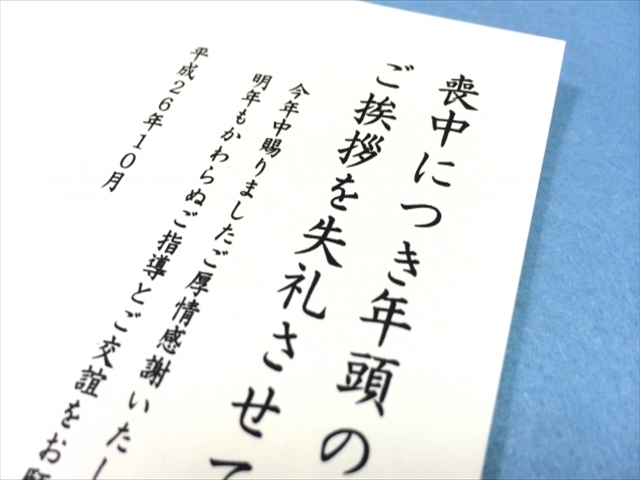 喪中につき年頭の
ご挨拶を失礼させて
今年中賜りましたご厚情感謝いたし
明年もかわらぬご指導とご交誼をお願
平成26年10月